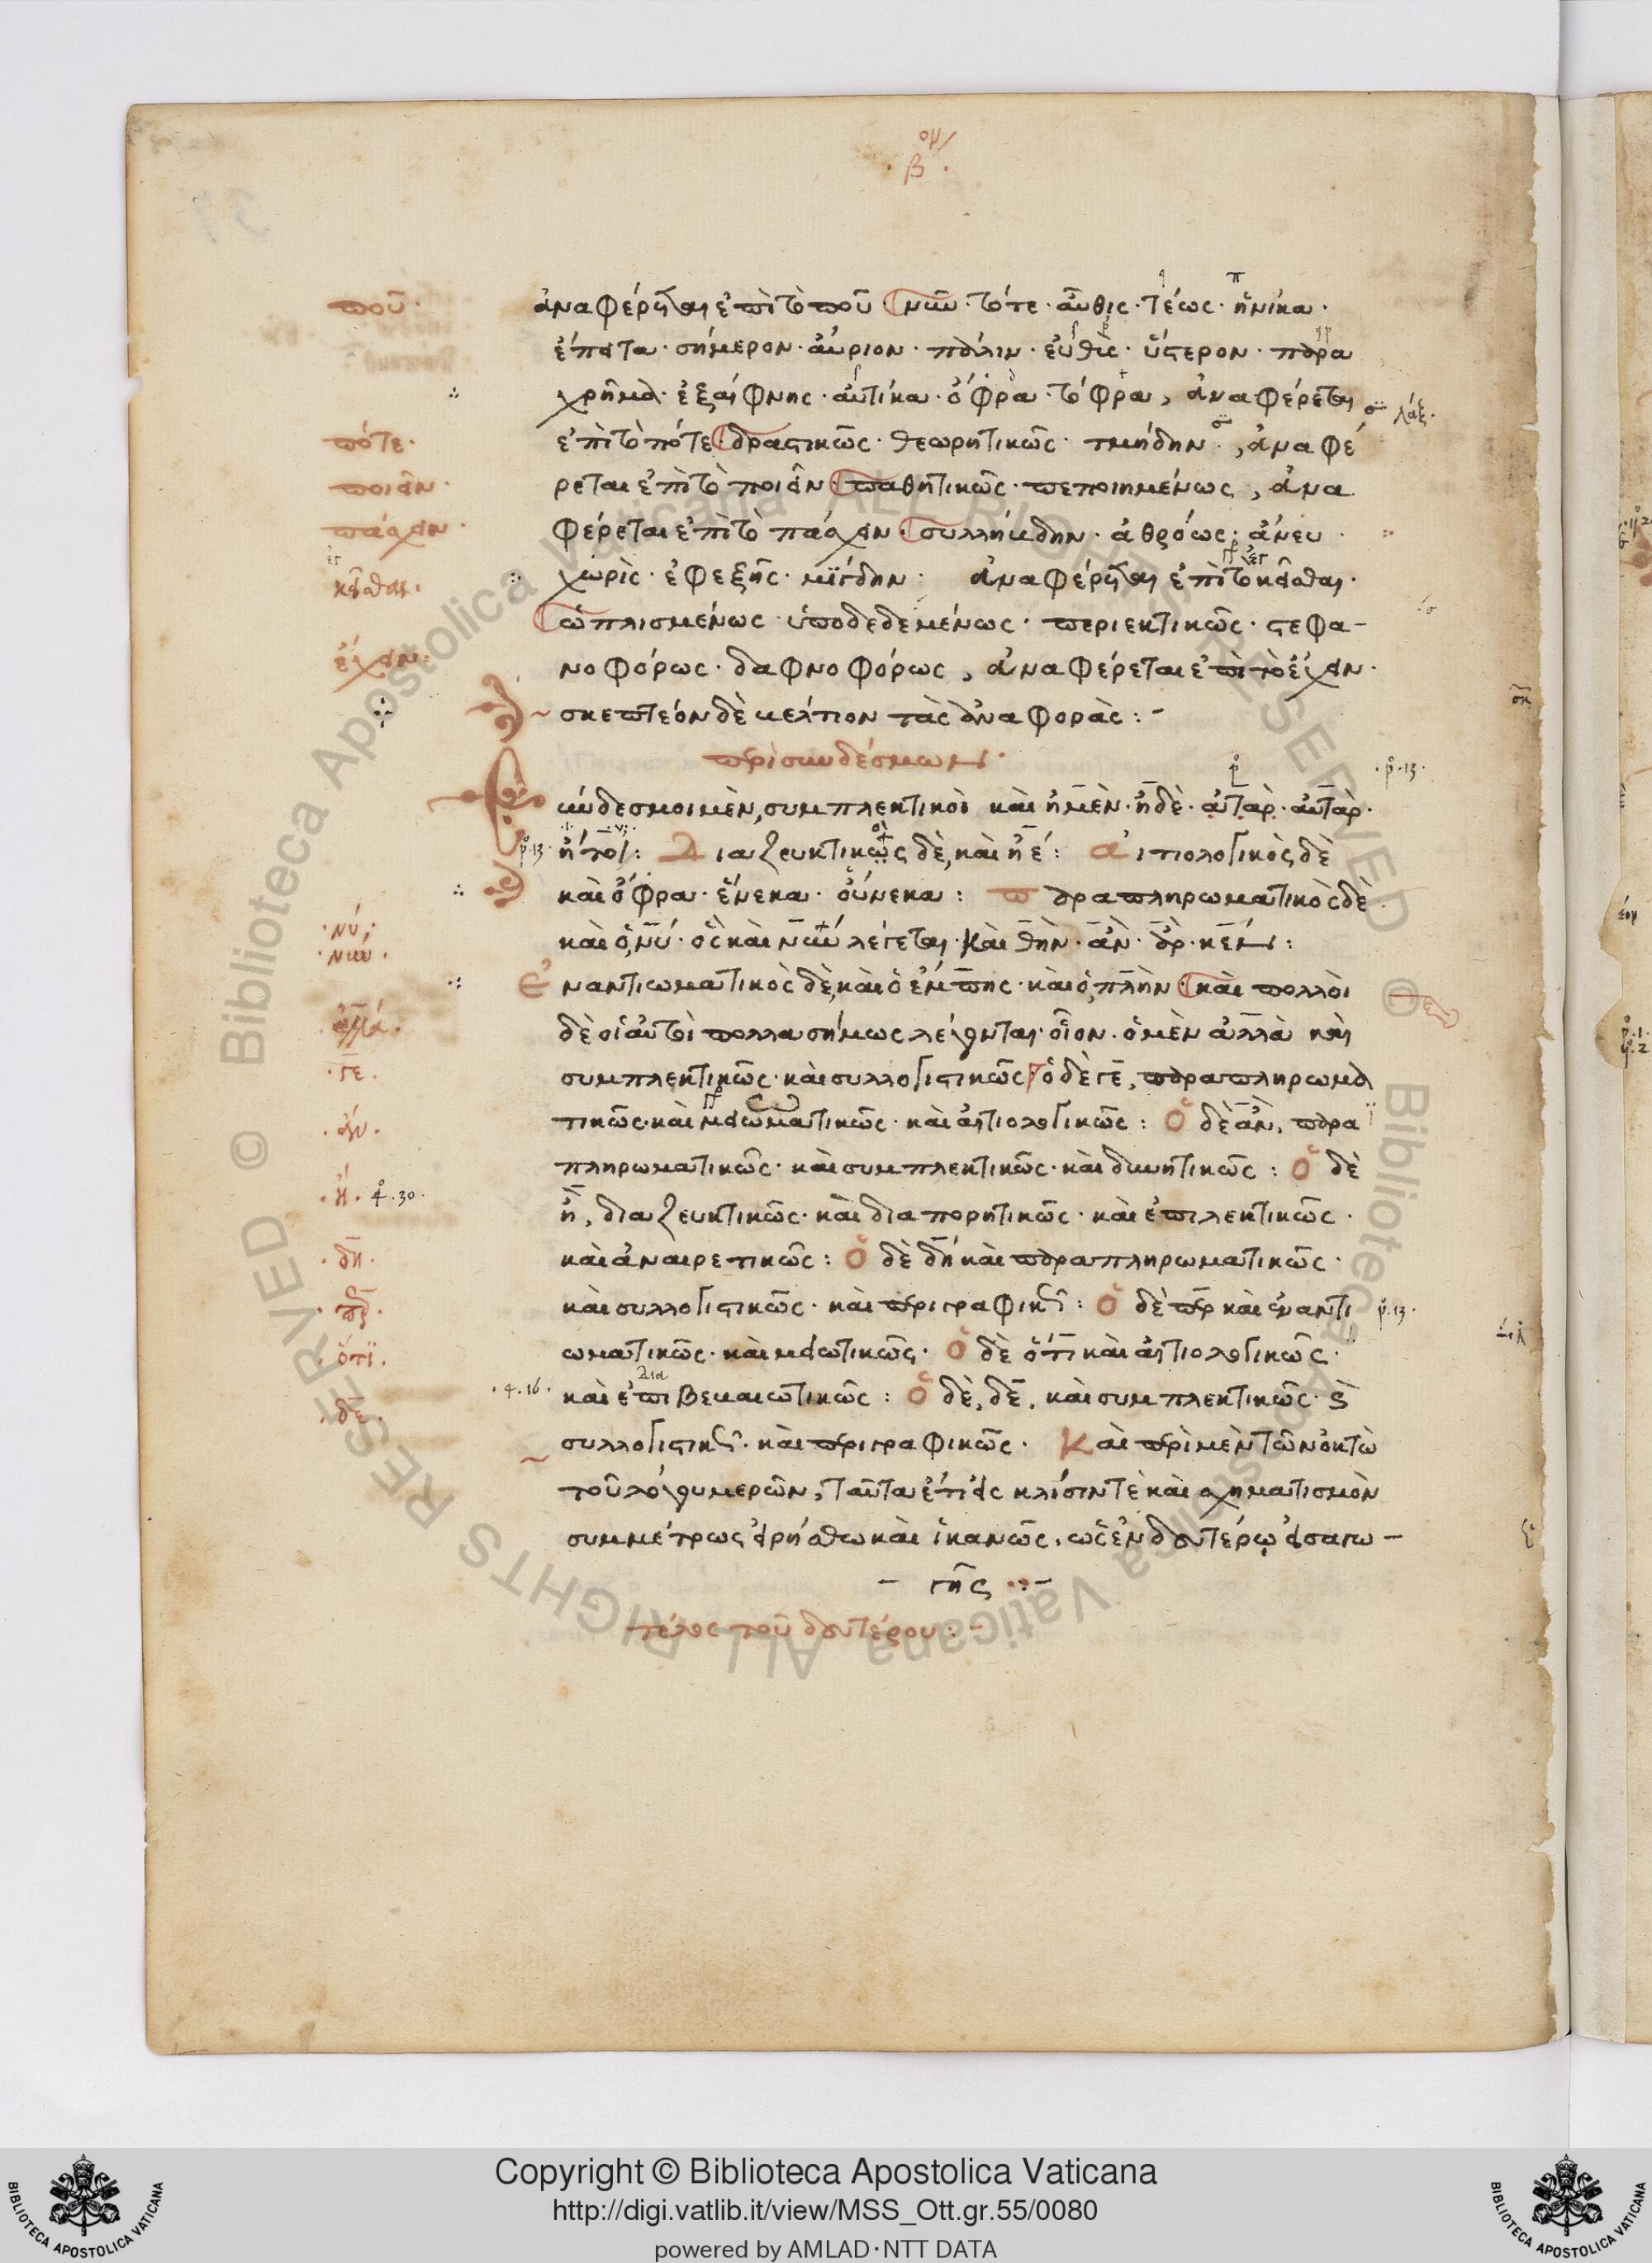 · β ·
ἀναφέρεσθαι ἐπὶ τὸ ποῦ νῦν · τότε · αὖθις · τέως · ἡνίκα ·
ἔπειτα · σήμερον · αὔριον · πάλιν · εὐθὺς · ὕστερον · παρα
χρῆμα · ἐξαίφνης · αὐτίκα · ὄφρα · τόφρα, ἀναφέρεται
ἐπὶ τὸ πότε δραστικῶς · θεωρητικῶς · τμήδην, ἀναφέ
ρεται ἐπὶ τὸ ποιεῖν · παθητικῶς · πεποιημένως, ἀνα
φέρεται ἐπὶ τὸ πάσχειν · συλλήβδην · ἀθρόως · ἄνευ ·
χωρὶς · ἐφεξῆς · μίγδην · ἀναφέρεσθαι ἐπὶ τὸ κεῖσθαι ·
ὡπλισμένως · ὑποδεδεμένως · περιεκτικῶς · στεφα-
νοφόρως · δαφνοφόρως, ἀναφέρεται ἐπὶ τὸ ἔχειν ·
σκεπτέον δὲ βέλτιον τὰς ἀναφοράς : -
περὶ συνδέσμων ·
Σύνδεσμοι μὲν, συμπλεκτικοὶ καὶ ἠμὲν · ἠδὲ · ἀτὰρ · αὐτὰρ ·
ἤτοι : Διαζευκτικῶς δὲ, καὶ ἠέ : αἰτιολογικὸς δὲ
καὶ ὄφρα · ἕνεκα · οὕνεκα : παραπληρωματικὸς δὲ
καὶ ὁ νύ · ὃς καὶ νῦν λέγεται · καὶ θὴν · ἂν · ἂρ · κέν :
ἐναντιωματικὸς δὲ, καὶ ὁ ἔμπης · καὶ ὁ πλὴν καὶ πολλοὶ
δὲ οἱ αὐτοὶ πολλασήμως λέγονται · οἷον · ὁ μὲν ἀλλὰ καὶ
συμπλεκτικῶς · καὶ συλλογιστικῶς ὁ δὲ γε, παραπληρωμα
τικῶς · καὶ μειωματικῶς · καὶ αἰτιολογικῶς : Ὁ δὲ ἂν, παρα
πληρωματικῶς · καὶ συμπλεκτικῶς · καὶ δυνητικῶς : Ὁ δὲ
ἢ, διαζευκτικῶς · καὶ διαπορητικῶς · καὶ ἐπιλεκτικῶς ·
καὶ ἀναιρετικῶς : Ὁ δὲ δή καὶ παραπληρωματικῶς ·
καὶ συλλογιστικῶς · καὶ περιγραφικῶς : Ὁ δὲ περ καὶ ἐναντι
ωματικῶς · καὶ μειωτικῶς · Ὁ δὲ ὅτι καὶ αἰτιολογικῶς ·
καὶ ἐπιβεβαιωτικῶς : Ὁ δὲ, δὲ, καὶ συμπλεκτικῶς · καὶ
συλλογιστικῶς · καὶ περιγραφικῶς · Καὶ περὶ μὲν τῶν ὀκτὼ
τοῦ λόγου μερῶν, ταῦτα ἔτι εἰς κλίσιν τὲ καὶ σχηματισμὸν
συμμέτρως εἰρήσθω καὶ ἱκανῶς, ὡς ἐν δευτέρῳ εἰσαγω-
- γῆς : -
τέλος τοῦ δευτέρου : -
ποῦ ·
πότε ·
ποιεῖν ·
πάσχειν ·
κεῖσθαι ·
ἔχειν :
· νύ, ·
· νῦν ·
ἀλλά ·
· γε ·
· ἄν ·
· ἤ · 4.30 ·
· δὴ ·
· περ ·
· ὅτι ·
· δὲ ·
λάξ ·
· 4 · 16 ·
Copyright © Biblioteca Apostolica Vaticana
http://digi.vatlib.it/view/MSS_Ott.gr.55/0080
powered by AMLAD · NTT DATA
BIBLIOTECA APOSTOLICA VATICANA
BIBLIOTECA APOSTOLICA VATICANA
© Biblioteca Apostolica Vaticana ALL RIGHTS RESERVED © Biblioteca Apostolica Vaticana ALL RIGHTS RESERVED